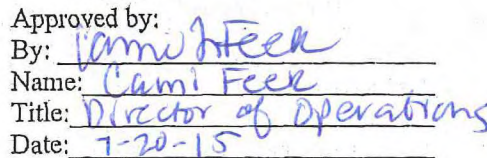 Approved by:
By: Cami L Feek
Name: Cami Feek
Title: Director of Operations
Date: 7-20-15